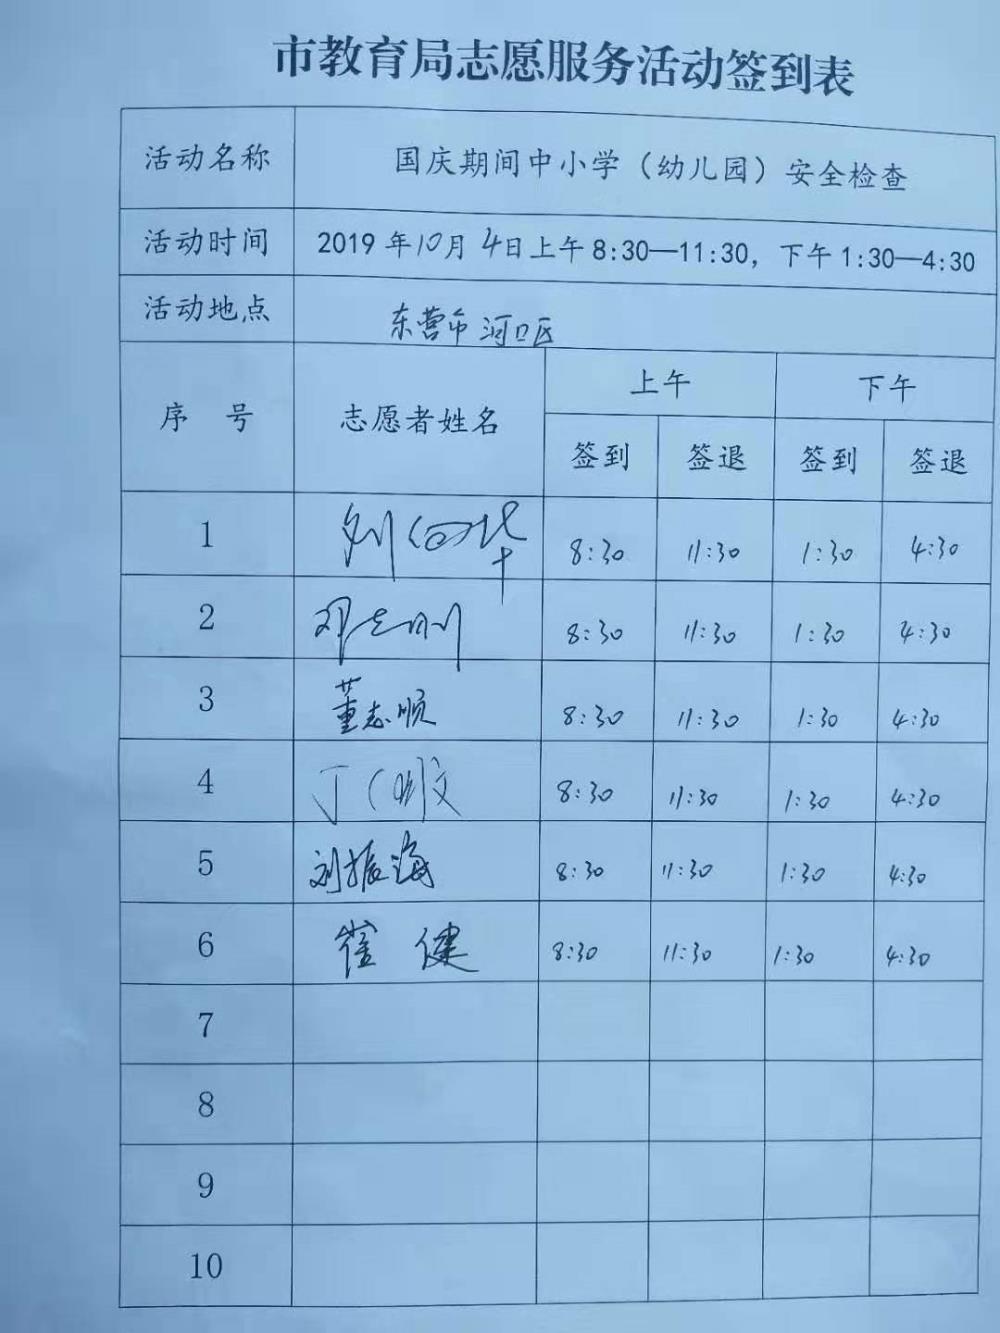 市教育局志愿服务活动签到表
活动名称 国庆期间中小学（幼儿园）安全检查
活动时间 2019年10月4日上午8:30—11:30，下午1:30—4:30
活动地点 东营市河口区
序 号 志愿者姓名 上午 下午
签到 签退 签到 签退
1 8:30 11:30 1:30 4:30
2 邓志刚 8:30 11:30 1:30 4:30
3 董志顺 8:30 11:30 1:30 4:30
4 8:30 11:30 1:30 4:30
5 刘振海 8:30 11:30 1:30 4:30
6 崔健 8:30 11:30 1:30 4:30
7
8
9
10